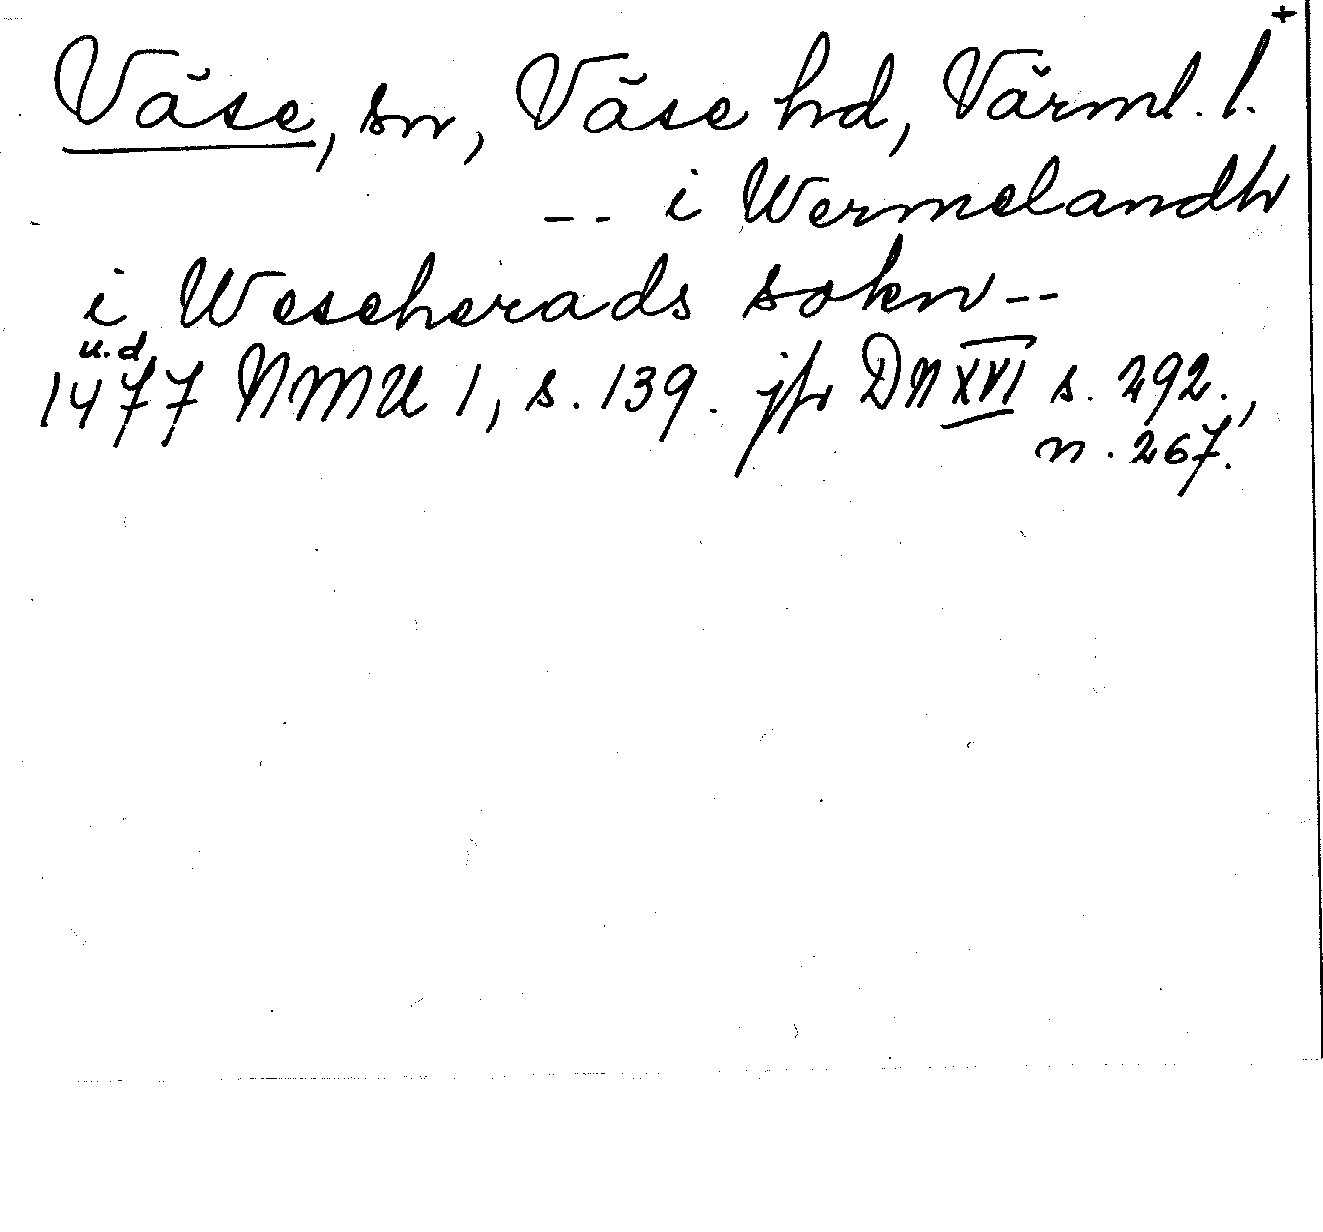 +
Väse, sn, Väse hd, Värml. l.
-- i Wermelandh
i Wescherads sokn --
u.d.
1477 NMU 1, s. 139. jfr DN XVI s. 292.,
n. 267.